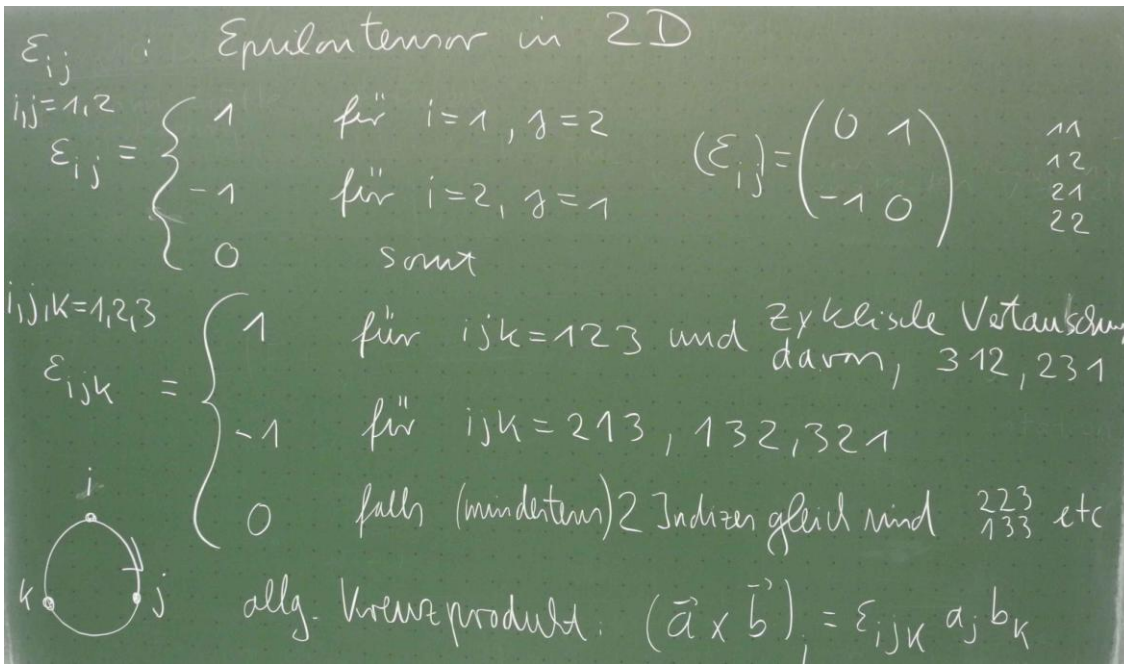 ε_ij : Epsilontensor in 2D
i,j=1,2
ε_ij = { 1 für i=1, j=2
-1 für i=2, j=1
0 sonst
(ε_ij) = ( 0 1
-1 0 )
11
12
21
22
i,j,k=1,2,3
ε_ijk = { 1 für ijk=123 und zyklische Vertauschung
davon, 312, 231
-1 für ijk=213, 132, 321
0 falls (mindestens) 2 Indizes gleich sind 223 etc
133
i
k j
allg. Kreuzprodukt: (a⃗ x b⃗)_i = ε_ijk a_j b_k